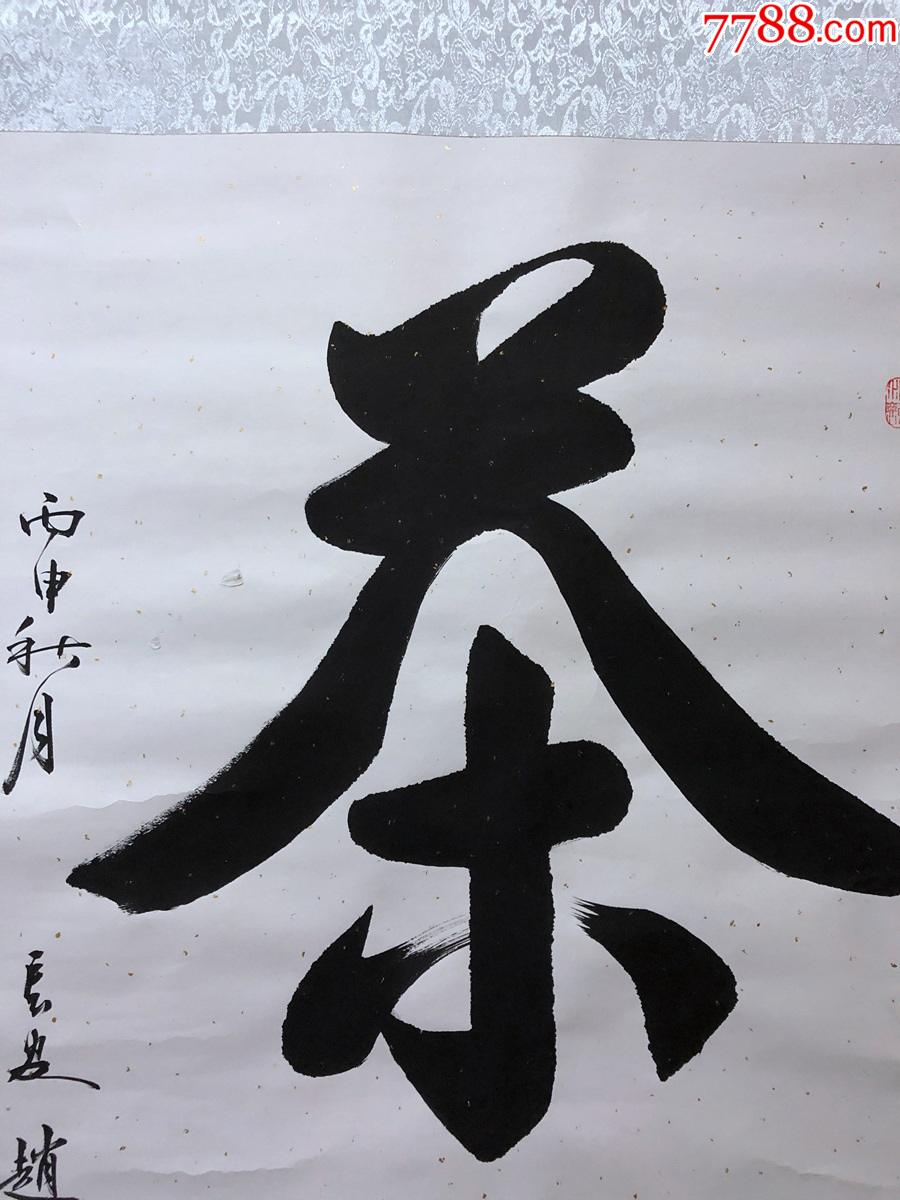 7788.com
茶
丙申秋月
長安
趙